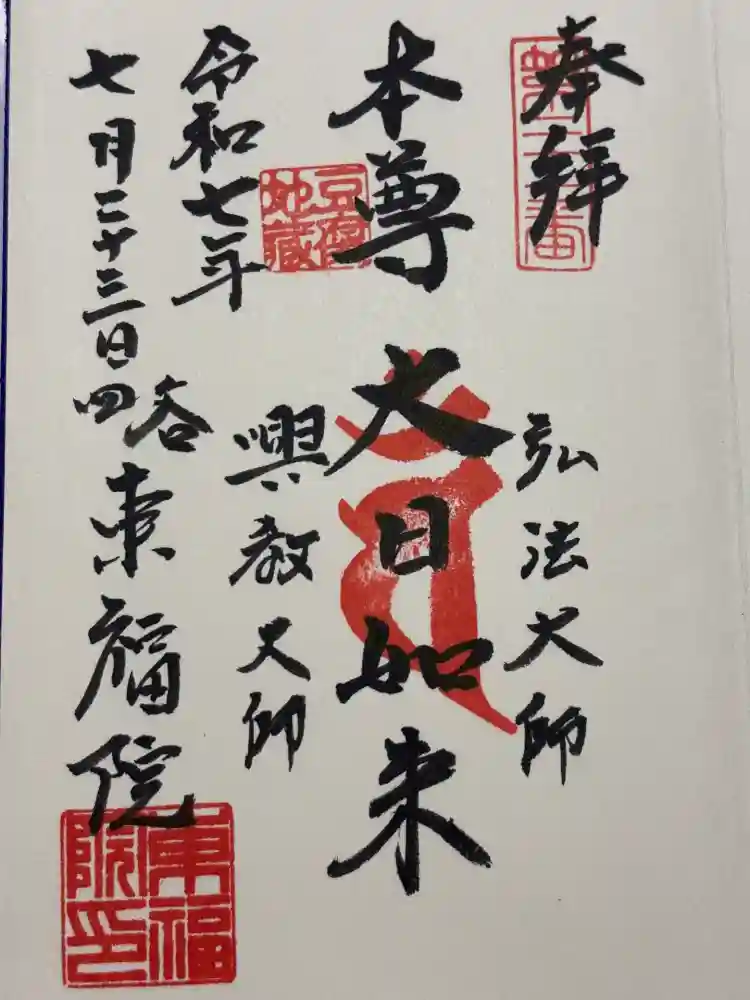 奉拝
弘法大師
本尊大日如来
興教大師
令和七年
七月二十三日
四谷東福院
豆腐地蔵
東福院印